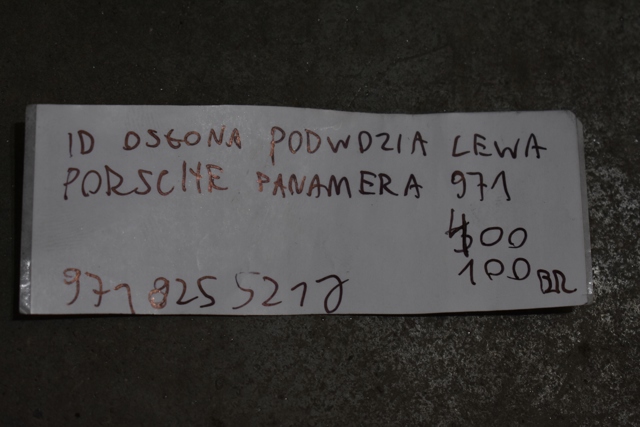 ID OSŁONA PODWOZIA LEWA
PORSCHE PANAMERA 971
400
971 825 521 J
100 BR